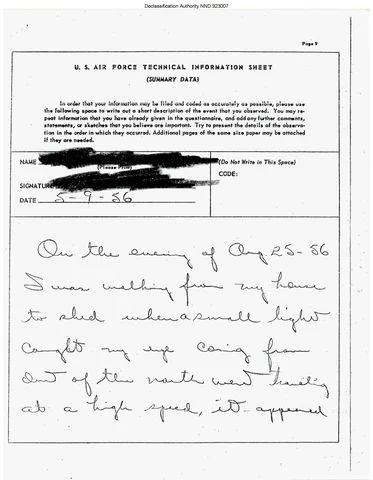 Declassification Authority NND 923007
Page 9
U. S. AIR FORCE TECHNICAL INFORMATION SHEET
(SUMMARY DATA)
In order that your information may be filed and coded as accurately as possible, please use
the following space to write out a short description of the event that you observed. You may re-
peat information that you have already given in the questionnaire, and add any further comments,
statements, or sketches that you believe are important. Try to present the details of the observa-
tion in the order in which they occurred. Additional pages of the same size paper may be attached
if they are needed.
NAME
(Please Print)
(Do Not Write in This Space)
CODE:
SIGNATURE
DATE 5-9-56
On the evening of Aug. 25-56
I was walking from my house
to shed when a small light
caught my eye coing from
out of the north west traveling
at a high speed, it appeared